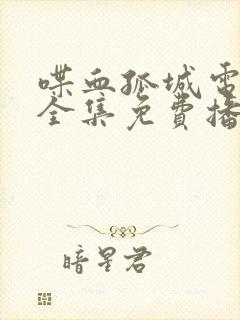 喋血孤城電
全集免費播
暗星君